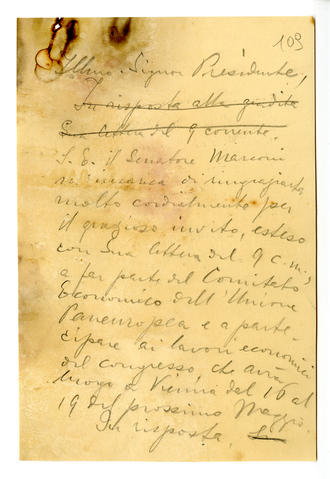 103
Illmo. Signor Presidente,
In risposta alla gradita
Sua lettera del 9 corrente.
S. E. il Senatore Marconi
m'incarica di ringraziarla
molto cordialmente per
il grazioso invito, esteso
con Sua lettera del 9 c.m.,
a far parte del Comitato
Economico dell'Unione
Paneuropea e a parte-
cipare ai lavori economici
del congresso, che avrà
luogo a Vienna dal 16 al
19 del prossimo Maggio.
In risposta,